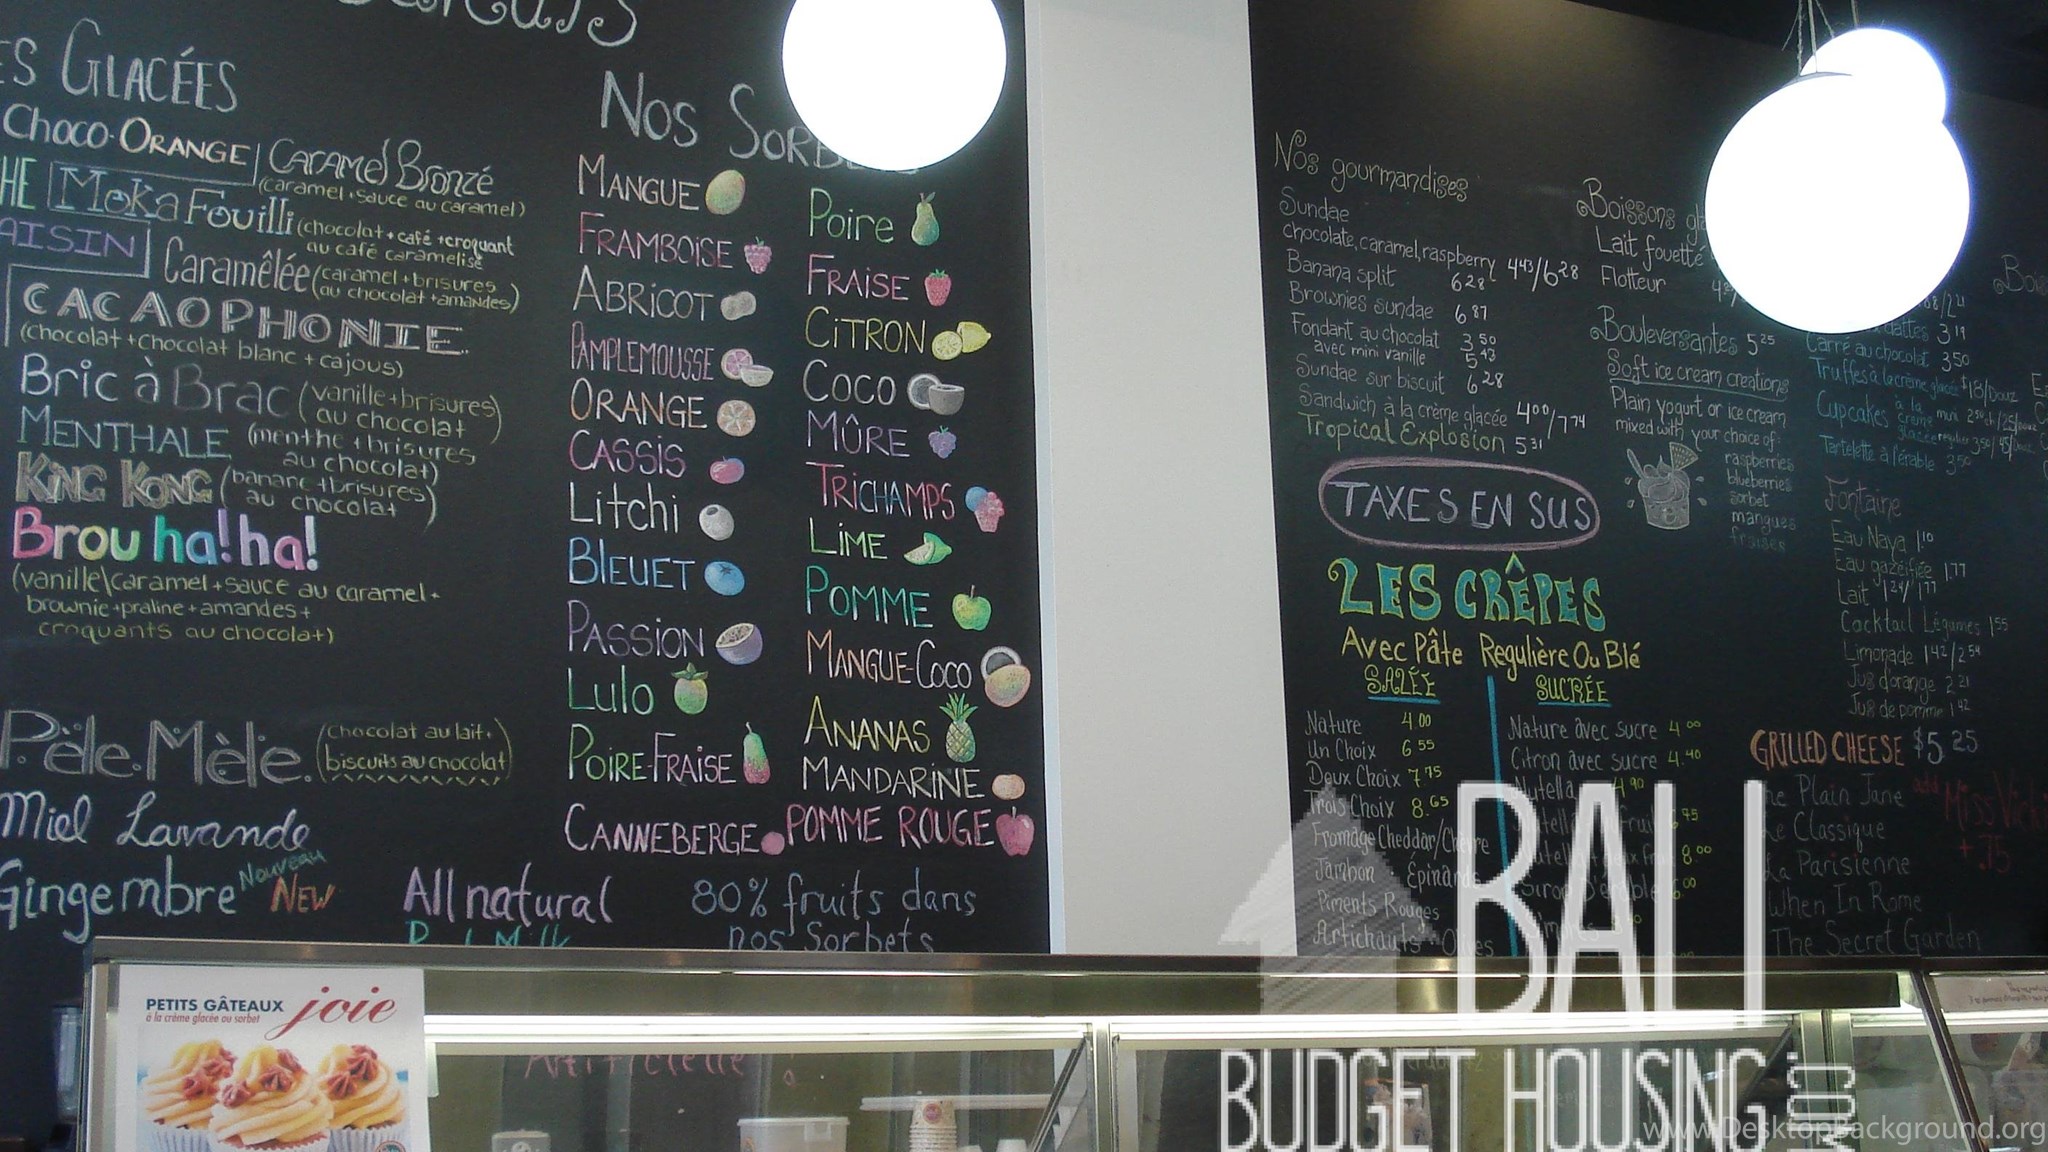 GLACÉES
Choco-ORANGE
Caramel Bronzé
(caramel+sauce au caramel)
Moka Fouilli (chocolat+café+croquant
au café caramélisé
Caramêlée (caramel+brisures
au chocolat+amandes)
CACAOPHONIE
(chocolat+chocolat blanc+cajous)
Bric à Brac (vanille+brisures)
au chocolat
MENTHALE (menthe+brisures
au chocolat)
KING KONG (banane+brisures)
au chocolat
Brou ha! ha!
(vanille\caramel+sauce au caramel+
brownie+praline+amandes+
croquants au chocolat)
Pêle.Mêle. (chocolat au lait+
biscuits au chocolat)
Miel Lavande
Gingembre Nouveau
NEW
All natural
80% fruits dans
nos sorbets
NOS
MANGUE
FRAMBOISE
ABRICOT
PAMPLEMOUSSE
ORANGE
CASSIS
Litchi
BLEUET
PASSION
Lulo
POIRE-FRAISE
CANNEBERGE
Poire
FRAISE
CITRON
COCO
MÛRE
TRICHAMPS
LIME
POMME
MANGUE-COCO
ANANAS
MANDARINE
POMME ROUGE
Nos gourmandises
Sundae
chocolate, caramel, raspberry 4 43/6 28
Banana split 6 28
Brownies sundae 6 87
Fondant au chocolat 3 50
avec mini vanille 5 43
Sundae sur biscuit 6 28
Sandwich à la crème glacée 4 00/7 74
Tropical Explosion 5 31
TAXES EN SUS
Boissons
Lait fouetté
Flotteur
Bouleversantes 5 25
Soft ice cream creations
Plain yogurt or ice cream
mixed with your choice of:
raspberries
blueberries
sorbet
mangues
fraises
3 19
Carré au chocolat 3 50
Truffes à la crème glacée $18/Douz
Cupcakes à la
crème
glacée
Tartelette à l'érable 3 50
Fontaine
Eau Naya 1.10
Eau gazéifiée 1.77
Lait 1 24/1 77
Cocktail Légumes 1 55
Limonade 1 42/2 54
Jus d'orange 2 21
Jus de pomme 1 42
LES CRÊPES
Avec Pâte Regulière Ou Blé
SALÉE
Nature 4 00
Un Choix 6 55
Deux Choix 7.75
Trois Choix 8.65
Fromage Cheddar/Chèvre
Jambon Épinards
Piments Rouges
Artichauts Olives
SUCRÉE
Nature avec sucre 4 00
Citron avec sucre 4.40
Nutella 4 90
8.00
GRILLED CHEESE $5 25
The Plain Jane
Le Classique
La Parisienne
When In Rome
The Secret Garden
add
+.75
PETITS GÂTEAUX joie
à la crème glacée ou sorbet
Artificielle
BALI
BUDGET HOUSING
.COM
www.DesktopBackground.org